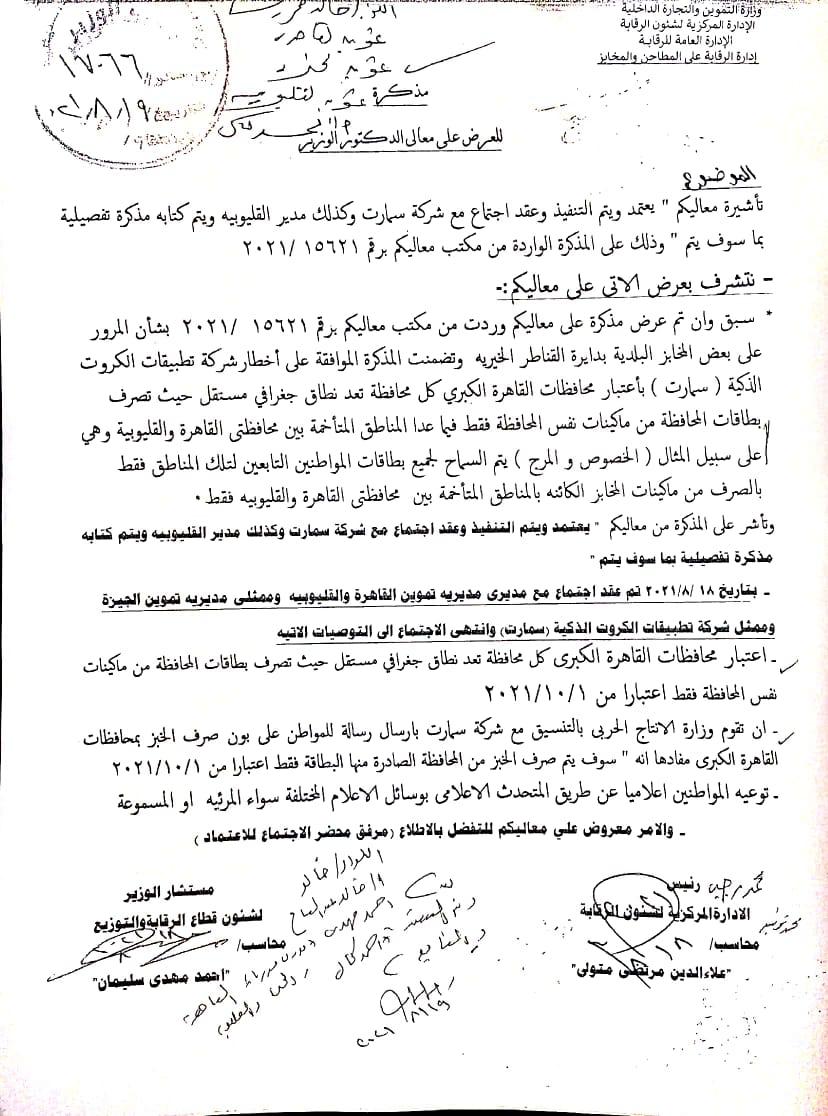 وزارة التموين والتجارة الداخلية
الإدارة المركزية لشئون الرقابة
الإدارة العامة للرقابة
إدارة الرقابة على المطاحن والمخابز
١٧٠٦٦
مذكرة
للعرض على معالى الدكتور الوزير
الموضوع
تأشيرة معاليكم " يعتمد ويتم التنفيذ وعقد اجتماع مع شركة سمارت وكذلك مدير القليوبيه ويتم كتابه مذكرة تفصيلية
بما سوف يتم " وذلك على المذكرة الواردة من مكتب معاليكم برقم ١٥٦٢١ /٢٠٢١
- نتشرف بعرض الاتى على معاليكم:-
* سبق وان تم عرض مذكرة على معاليكم وردت من مكتب معاليكم برقم ١٥٦٢١ /٢٠٢١ بشأن المرور
على بعض المخابز البلدية بدايرة القناطر الخيريه وتضمنت المذكرة الموافقة على أخطار شركة تطبيقات الكروت
الذكية ( سمارت ) بأعتبار محافظات القاهرة الكبري كل محافظة تعد نطاق جغرافي مستقل حيث تصرف
بطاقات المحافظة من ماكينات نفس المحافظة فقط فيما عدا المناطق المتأخمة بين محافظتى القاهرة والقليوبية وهي
على سبيل المثال ( الخصوص و المرج ) يتم السماح لجميع بطاقات المواطنين التابعين لتلك المناطق فقط
بالصرف من ماكينات المخابز الكائنه بالمناطق المتأخمة بين محافظتى القاهرة والقليوبيه فقط .
وتأشر على المذكرة من معاليكم " يعتمد ويتم التنفيذ وعقد اجتماع مع شركة سمارت وكذلك مدير القليوبيه ويتم كتابه
مذكرة تفصيلية بما سوف يتم "
ـ بتاريخ ٢٠٢١/٨/١٨ تم عقد اجتماع مع مديرى مديريه تموين القاهرة والقليوبيه وممثلى مديريه تموين الجيزة
وممثل شركة تطبيقات الكروت الذكية (سمارت) وانتهى الاجتماع الى التوصيات الاتيه
ـ اعتبار محافظات القاهرة الكبرى كل محافظة تعد نطاق جغرافي مستقل حيث تصرف بطاقات المحافظة من ماكينات
نفس المحافظة فقط اعتبارا من ٢٠٢١/١٠/١
ـ ان تقوم وزارة الانتاج الحربى بالتنسيق مع شركة سمارت بارسال رسالة للمواطن على بون صرف الخبز بمحافظات
القاهرة الكبرى مفادها انه " سوف يتم صرف الخبز من المحافظة الصادرة منها البطاقة فقط اعتبارا من ٢٠٢١/١٠/١
ـ توعيه المواطنين اعلاميا عن طريق المتحدث الاعلامى بوسائل الاعلام المختلفة سواء المرئيه او المسموعة
ـ والامر معروض علي معاليكم للتفضل بالاطلاع (مرفق محضر الاجتماع للاعتماد )
رئيس
الادارة المركزية لشئون الرقابة
محاسب/
"علاءالدين مرتضى متولى"
مستشار الوزير
لشئون قطاع الرقابة والتوزيع
محاسب/
"احمد مهدى سليمان"
٢٠٢١/٨/١٩